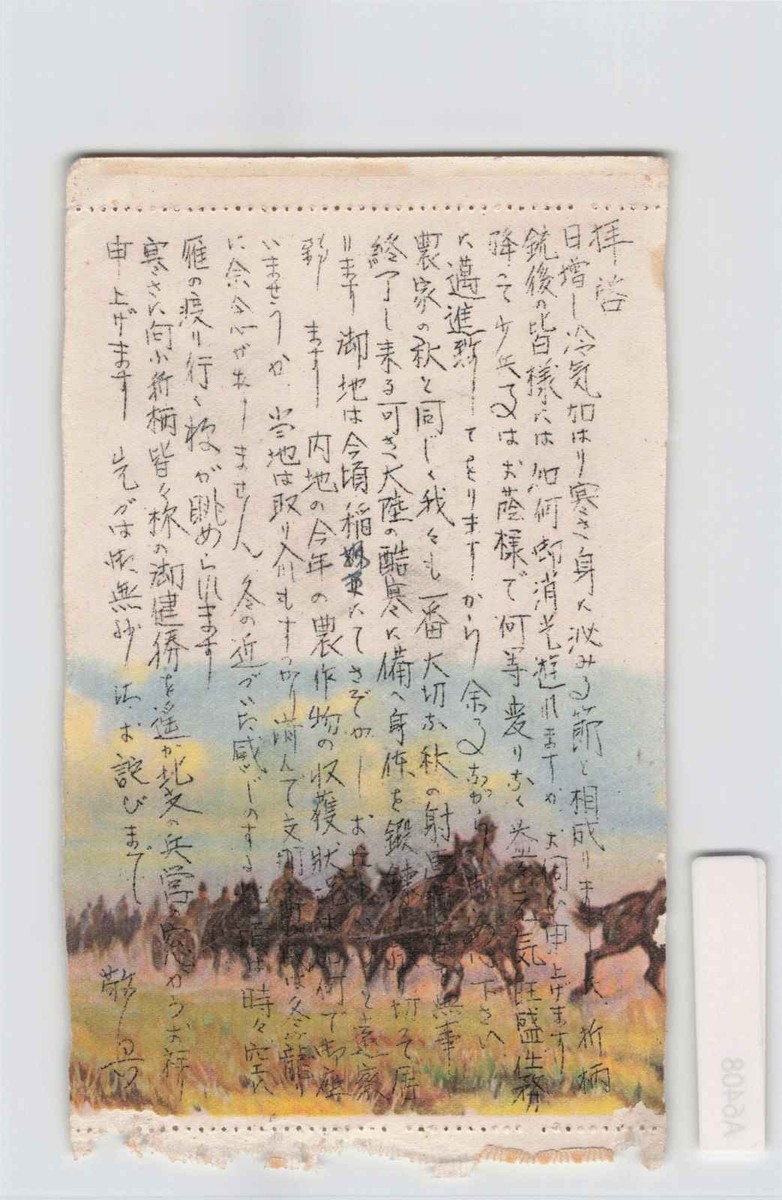 拝啓
日増し冷気加はり寒さ身に泌みる節と相成りました、折柄
銃後の皆様には如何御消光遊れますかお伺ひ申上げます
降って少兵事はお蔭様で何等変りなく益々元気旺盛任務
に邁進致して居りますから余事ながら御安心下さい
農家の秋と同じく我々も一番大切な秋の射撃 無事
終了し来る可き大陸の酷寒に備へ身体を鍛錬 切って居
ります 御地は今頃稲 にてさぞかしお と遠察
致します 内地の今年の農作物の収獲状況は如何で御座
いませうか、当地は取り入れもすっかり済んで 冬籠り
に余念がありません 冬の近づいた感じのする此頃は時々空を
雁の渡り行く様が眺められます
寒さに向ふ折柄皆々様の御健勝を遥か北支の兵営の窓からお祈り
申上げます 先づは御無沙汰お詫びまで
敬具
A6408